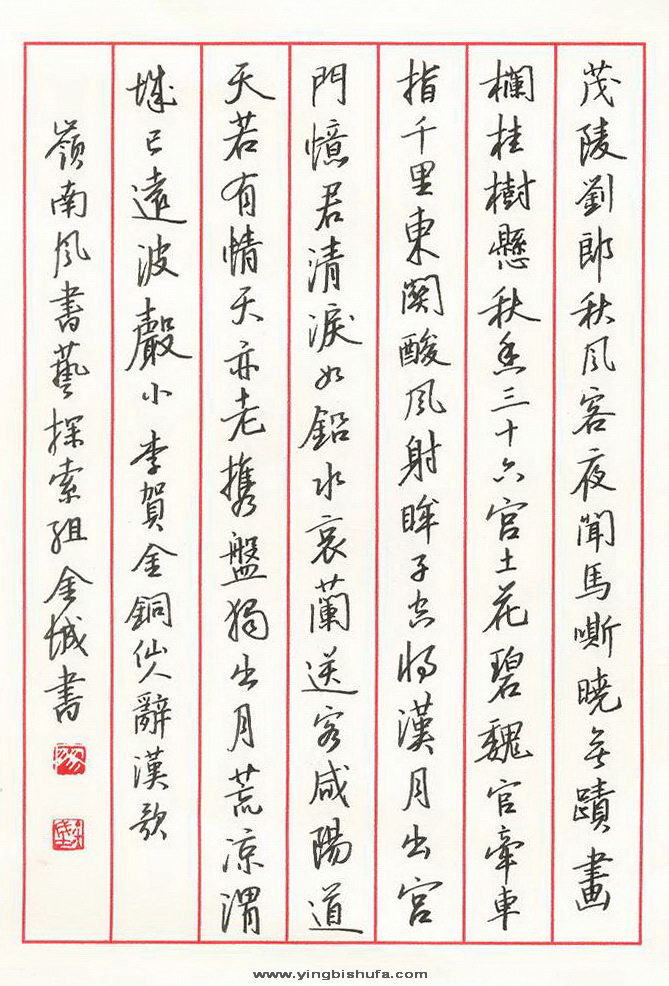 茂陵劉郎秋風客夜聞馬嘶曉無蹟畫
欄桂樹懸秋香三十六宮土花碧魏官牽車
指千里東關酸風射眸子空將漢月出宮
門憶君清淚如鉛水衰蘭送客咸陽道
天若有情天亦老攜盤獨出月荒涼渭
城已遠波聲小 李賀金銅仙人辭漢歌
嶺南風書藝探索組金城書
www.yingbishufa.com